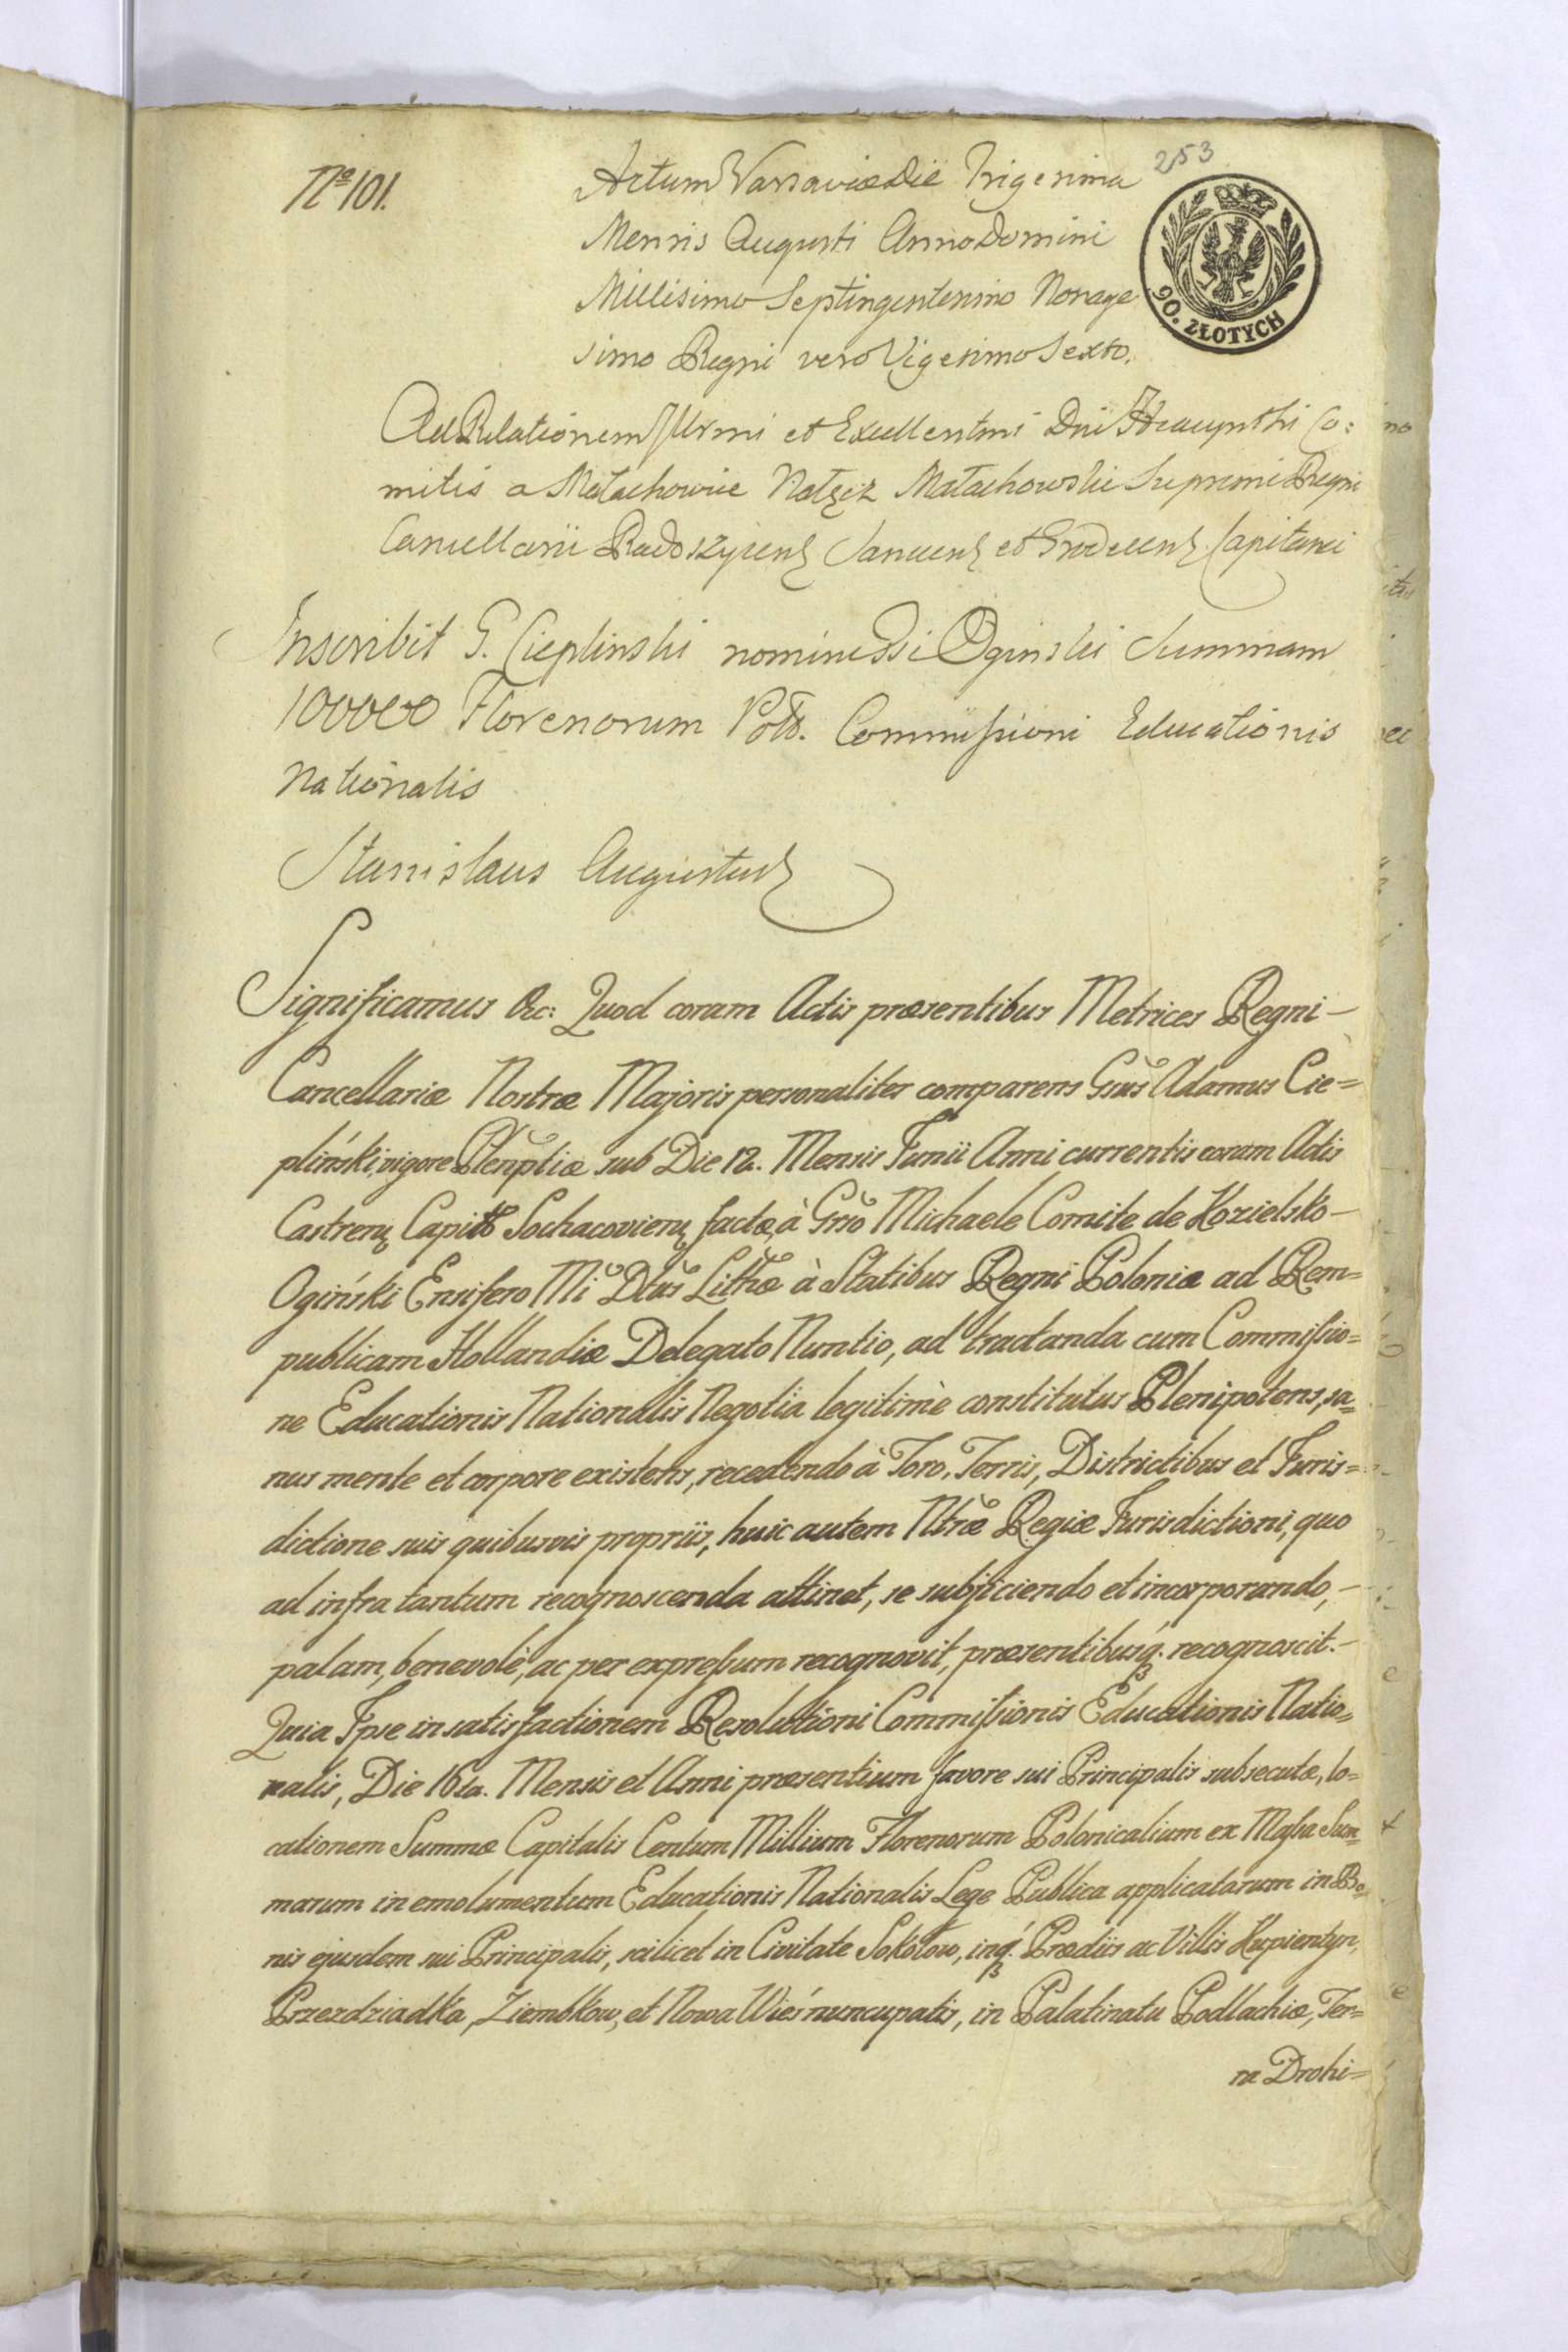 253
Nº 101.
Actum Varsaviæ Die Trigesima
Mensis Augusti Anno Domini
Millesimo Septingentesimo Nonage
simo Regni vero Vigesimo Sexto.
90. ZŁOTYCH
Ad Relationem Illrmi et Excellentmi Dni Hyacynthi Co:
mitis a Małachowice Nałęcz Małachowski Supremi Regni
Cancellarii Radoszycens Sancens et Grodecens Capitanei
Inscribit G. Cieplinski nomine Oginski Summam
100000 Florenorum Pol. Commissioni Educationis
Nationalis
Stanislaus Augustus
Significamus &c: Quod coram Actis præsentibus Metrices Regni –
Cancellariæ Nostræ Majoris personaliter comparens Gnũs Adamus Cie=
pliński, vigore Plenptiæ sub Die 12. Mensis Junii Anni currentis coram Actis
Castrens Capit Sochacoviens factæ, à Gnõ Michaele Comite de Kozielsko –
Ogiński Ensifero Mi Dtus Lithæ à Statibus Regni Poloniæ ad Rem=
publicam Hollandiæ Delegato Nuntio, ad tractanda cum Commissio=
ne Educationis Nationalis Negotia legitimè constitutus Plenipotens, sa=
nus mente et corpore existens, recedendo à Foro, Terris, Districtibus et Juris=
dictione suis quibusvis propriis, huic autem Ntræ Regiæ Jurisdictioni, quo
ad infra tantum recognoscenda attinet, se subjiciendo et incorporando, –
palam, benevolè, ac per expressum recognovit, præsentibusq. recognoscit. –
Quia Ipse in satisfactionem Resolutioni Commissionis Educationis Natio=
nalis, Die 16ta. Mensis et Anni præsentium favore sui Principalis subsecutæ, lo=
cationem Summæ Capitalis Centum Millium Florenorum Polonicalium ex Massa Sum=
marum in emolumentum Educationis Nationalis Lege Publica applicatarum in Bo=
nis ejusdem sui Principalis, scilicet in Civitate Sokołow, inq. Prædiis ac Villis Kupientyn,
Przezdziadka, Ziembkow, et Nowa Wieś nuncupatis, in Palatinatu Podlachiæ, Ter=
ra Drohi=